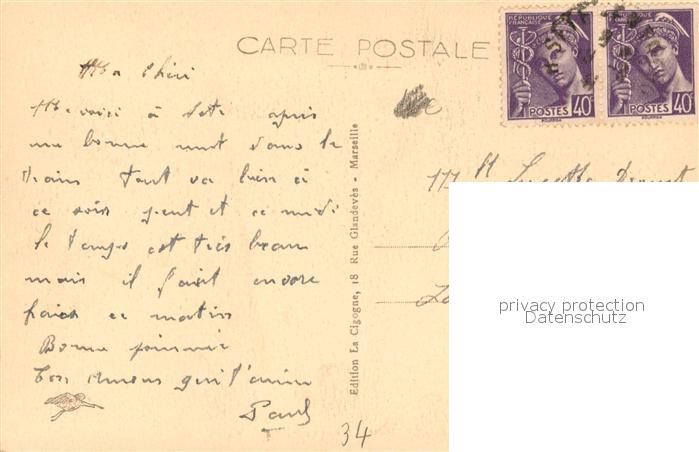 CARTE POSTALE
RÉPUBLIQUE FRANÇAISE
POSTES 40c
RÉPUBLIQUE FRANÇAISE
POSTES 40c
Ma chéri
Me voici à Sète après
une bonne nuit dans le
train tout va bien à
ce soir peut et ce midi
le temps est très beau
mais il fait encore
frais ce matin
Bonne journée
Ton amour qui t'aime
Paul
Edition La Cigogne, 18 Rue Glandevès - Marseille
Mlle Lucette
privacy protection
Datenschutz
34